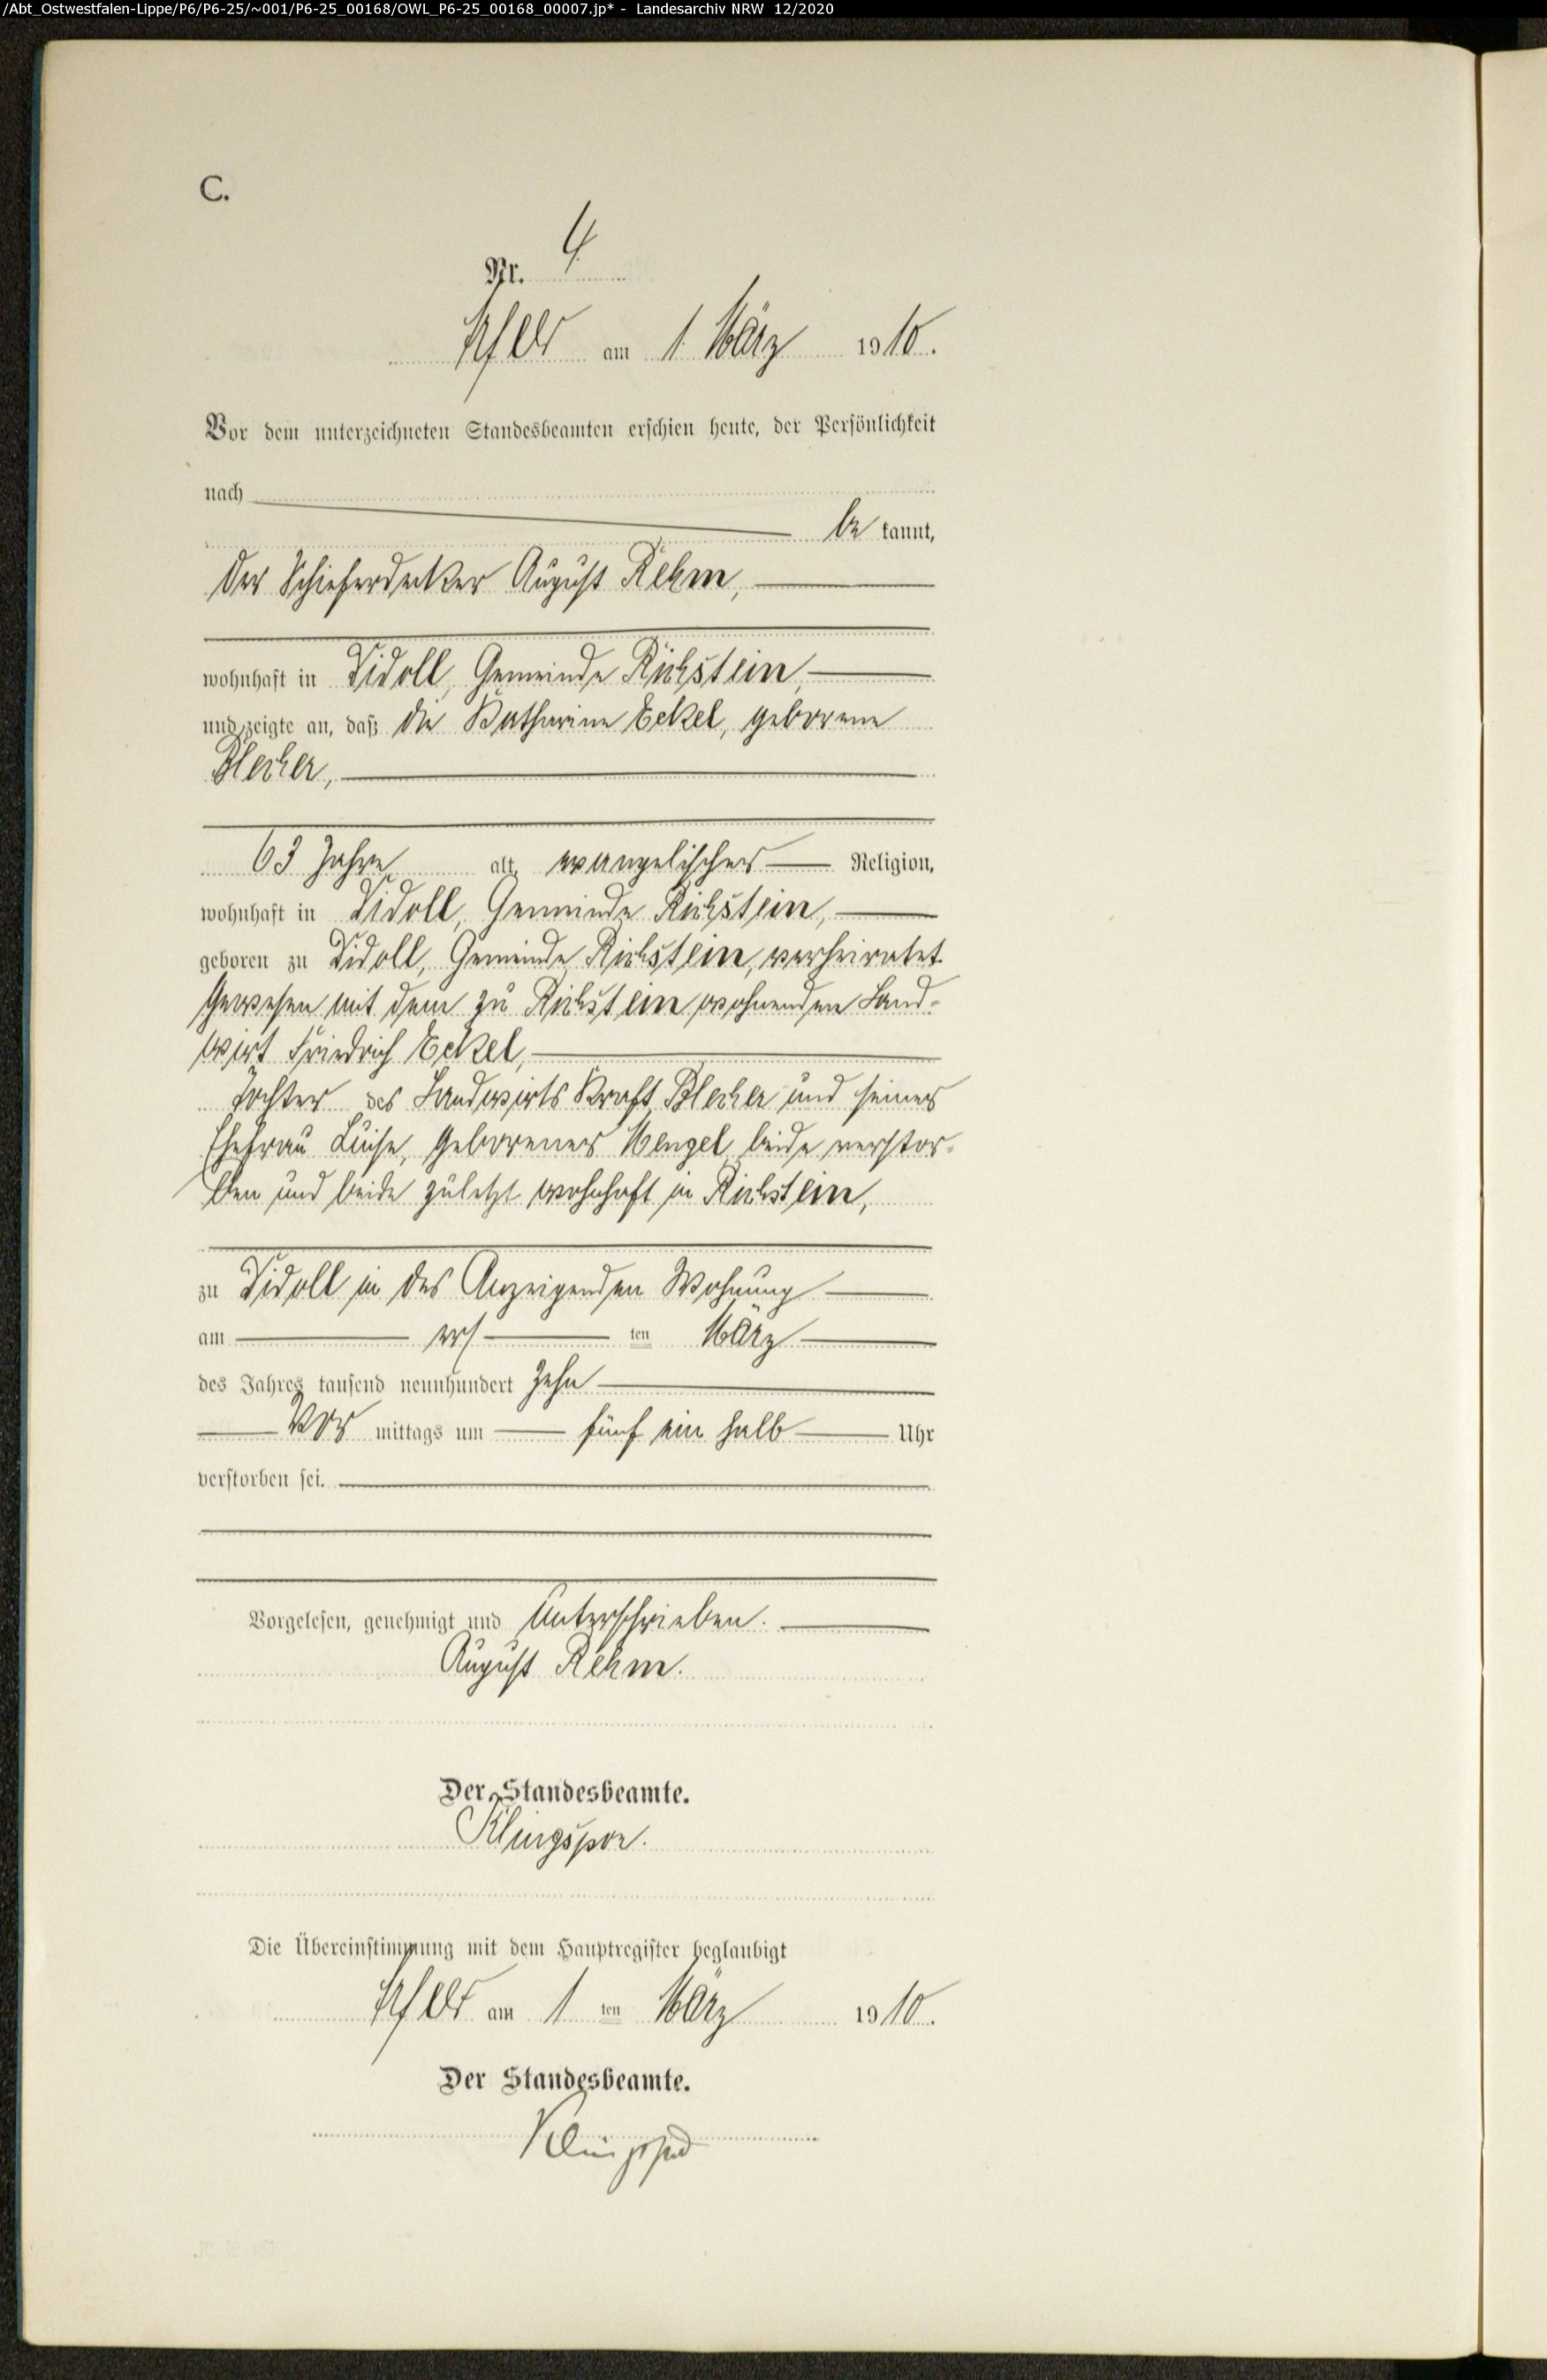 /Abt_Ostwestfalen-Lippe/P6/P6-25/~001/P6-25_00168/OWL_P6-25_00168_00007.jp* - Landesarchiv NRW 12/2020
C.
Nr. 4
Arfeld am 1 März 1910.
Vor dem unterzeichneten Standesbeamten erschien heute, der Persönlichkeit
nach
be kannt,
der Schieferdecker August Rehm,
wohnhaft in Didoll, Gemeinde Richstein,
und zeigte an, daß die Katharine Eckel, geborene
Blecher,
63 Jahre alt, evangelischer Religion,
wohnhaft in Didoll, Gemeinde Richstein,
geboren zu Didoll, Gemeinde Richstein, verheiratet
gewesen mit dem zu Richstein wohnenden Land-
wirt Friedrich Eckel,
Tochter des Landwirts Kraft Blecher und seiner
Ehefrau Luise, geborener Mengel beide verstor-
ben und beide zuletzt wohnhaft in Richstein,
zu Didoll in des Anzeigenden Wohnung
am ers ten März
des Jahres tausend neunhundert zehn
Vor mittags um fünf ein halb Uhr
verstorben sei.
Vorgelesen, genehmigt und unterschrieben.
August Rehm.
Der Standesbeamte.
Klingspor.
Die Übereinstimmung mit dem Hauptregister beglaubigt
Arfeld am 1 ten März 1910.
Der Standesbeamte.
Klingspor